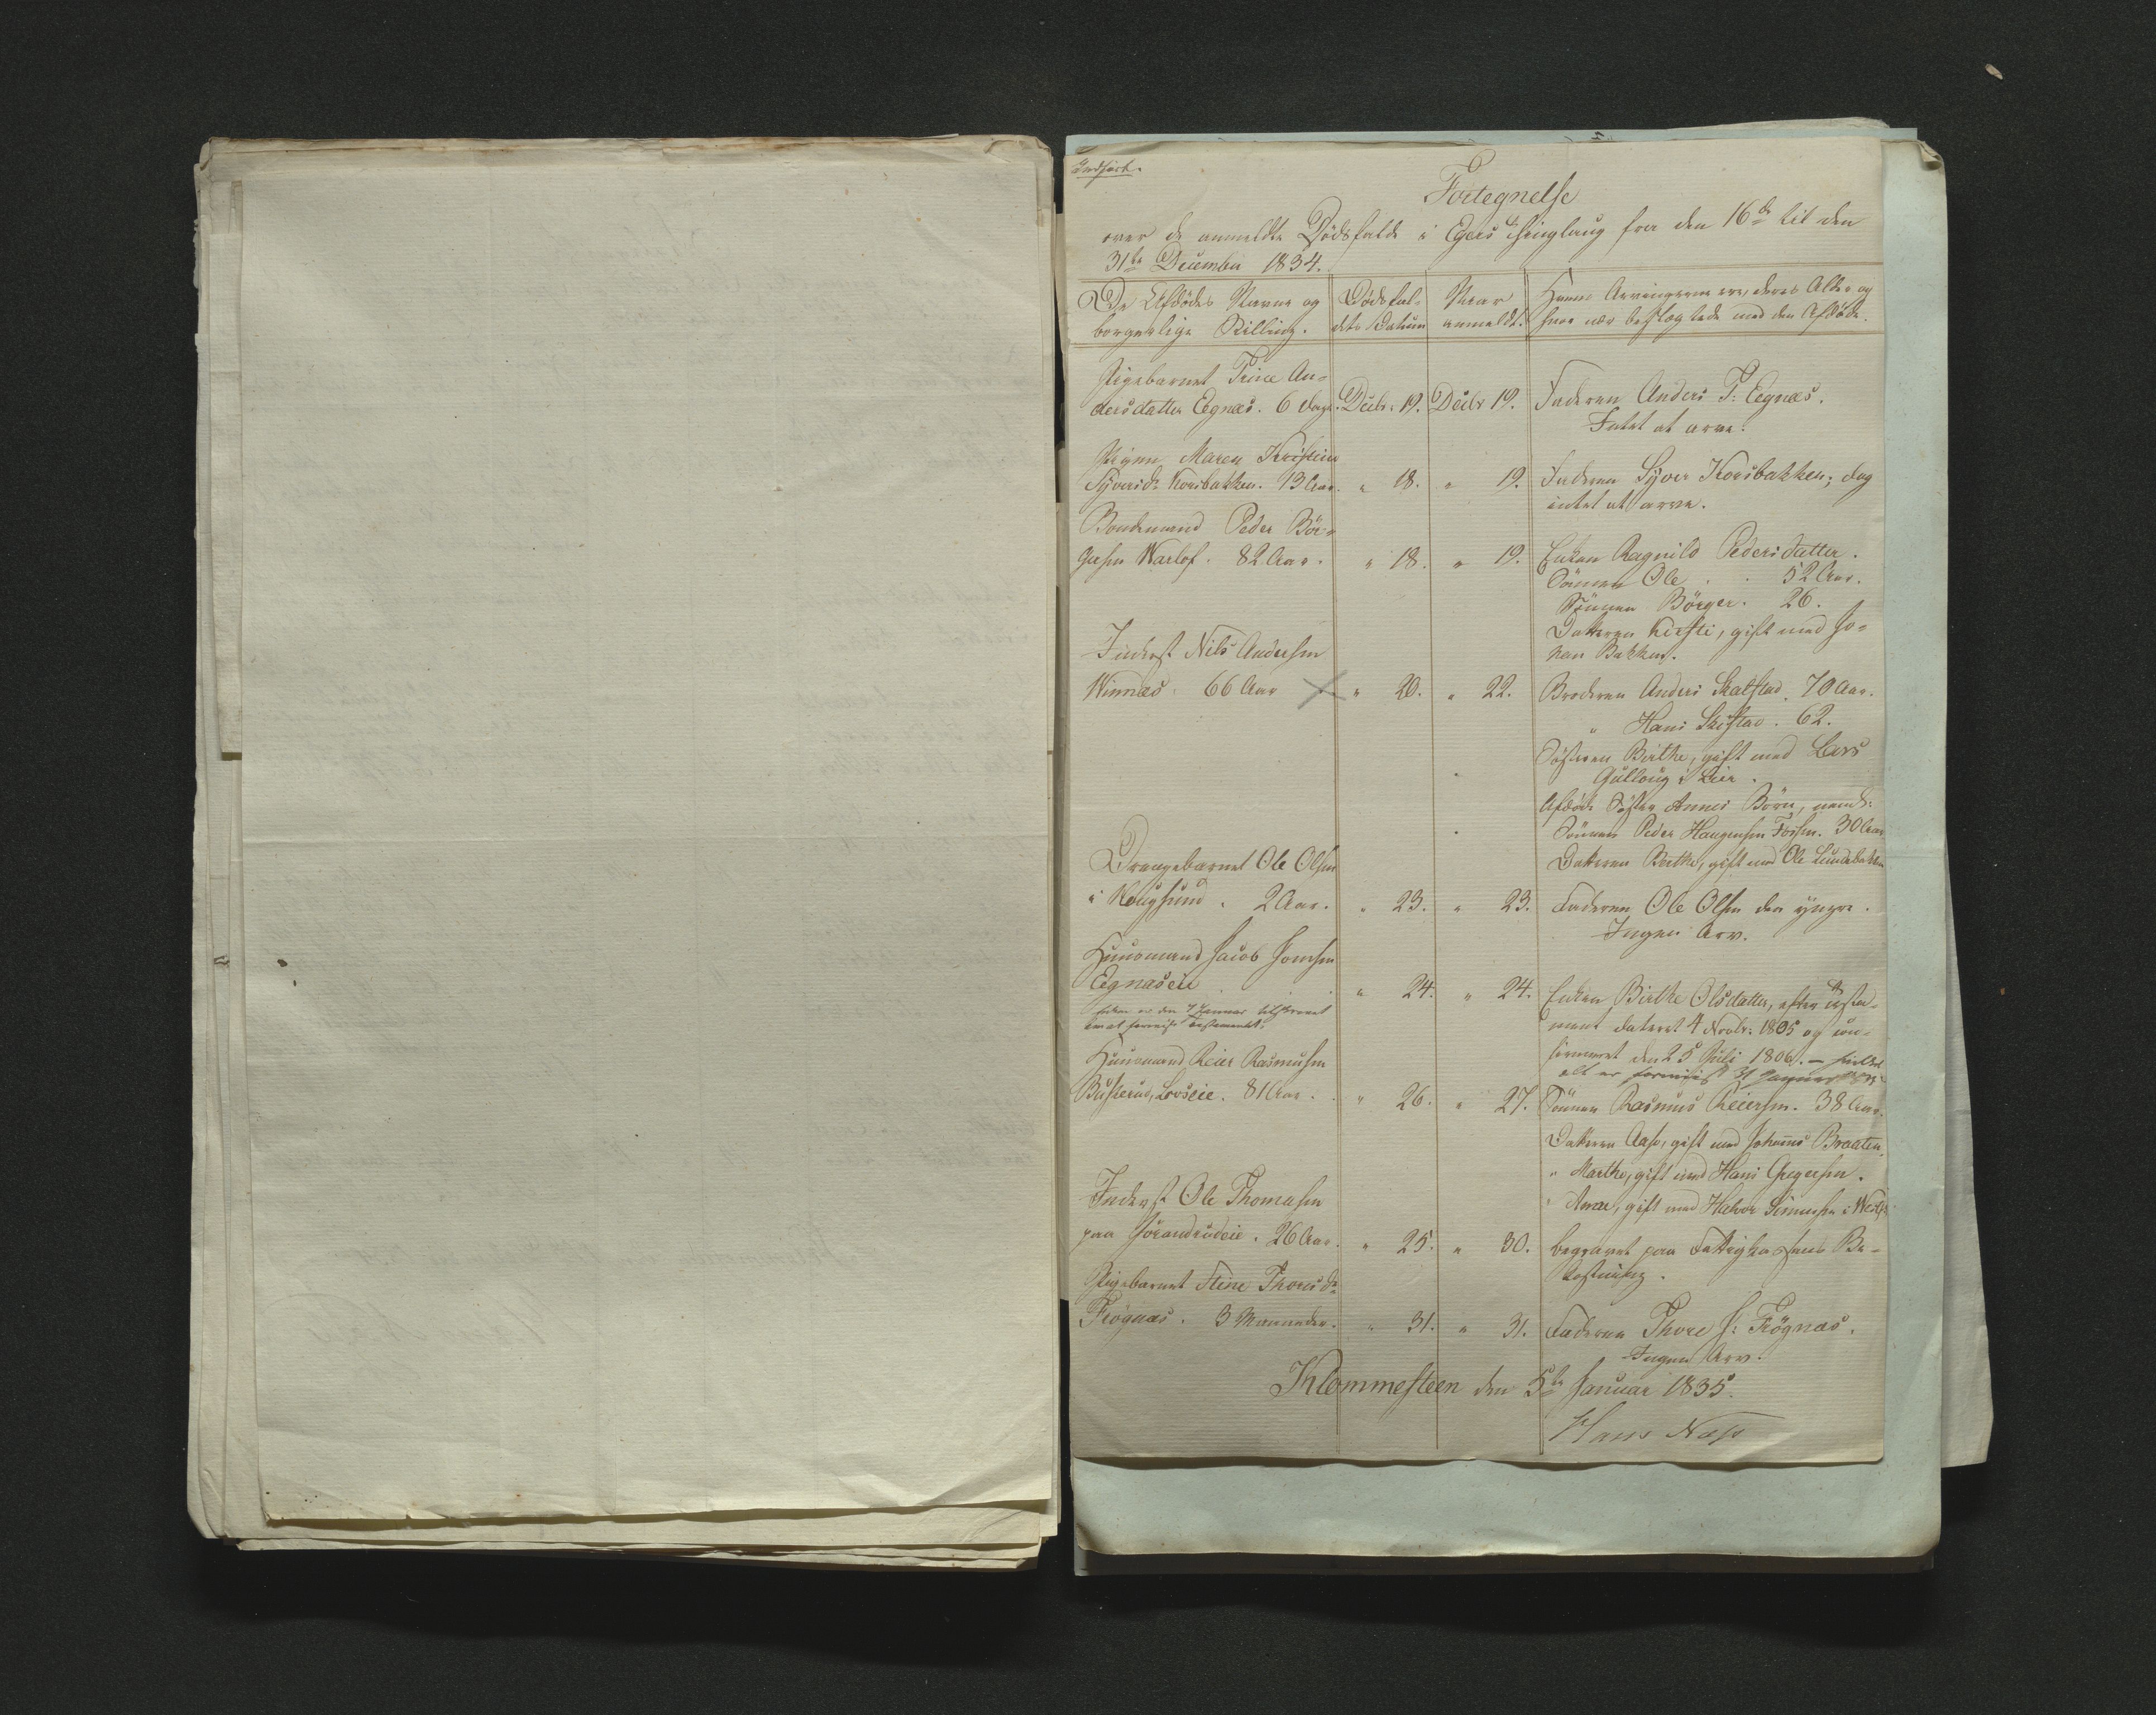 Indført.
Fortegnelse
over de anmeldte Dödsfald i Egers Thinglaug fra den 16de til den
31te December 1834.
De Afdödes Navne og borgerlige Stilling. Dödsfaldets Datum Naar anmeldt. Hvem Arvingerne ere, deres Alder og hvor nær beslægtede med den Afdöde.
Pigebarnet Trine An-
dersdatter Eegnæs. 6 Dage. Decbr. 19. Decbr 19. Faderen Anders P: Eegnæs.
Intet at arve.
Pigen Maren Kristine
Syversdr Korsbakken. 13 Aar. " 18. " 19. Faderen Syver Korsbakken; dog
intet at arve.
Bondemand Peder Bör-
gersen Warlof. 82 Aar. " 18. " 19. Enken Ragnild Pedersdatter.
Sönnen Ole 52 Aar.
Sönnen Börger. 26.
Datteren Kirsti, gift med Jo-
han Bakken.
Inderst Nils Andersen
Winnæs. 66 Aar " 20. " 22. Broderen Anders Skalstad. 70 Aar.
" Hans Skistad. 62.
Söstren Birthe, gift med Lars
Gulloug i Lier.
Afdöde Söster Annes Börn, nemlig:
Sönnen Peder Haugensen Fossen. 30 Aar
Datteren Berthe, gift med Ole Lundebakken
Drengebarnet Ole Olsen
i Krugsund. 2 Aar. " 23. " 23. Faderen Ole Olsen den yngre.
Ingen Arv.
Huusmand Jacob Jonsen
Eegnæseie " 24. " 24. Enken Birthe Olsdatter, efter Testa-
ment dateret 4 Novbr. 1805 og con-
firmeret den 25 Juli 1806.
Enken er den 7 Januar tilskrevet
om at forevise Testamentet.
alt er forevist 31 Januar
Huusmand Reier Rasmusen
Buskerud, Loeseie. 81 Aar. " 26. " 27. Sönnen Rasmus Reiersen. 38 Aar.
Datteren Aase, gift med Johannes Braaten.
" Marthe, gift med Hans Gregersen.
" Anne, gift med Halvor Simensen i
Inderst Ole Thomasen
paa Jörandrudeie. 26 Aar. " 25. " 30. begravet paa Fattigkassens Be-
kostning.
Pigebarnet Stine Thoresdr
Frögnæs. 3 Maaneder. " 31. " 31. Faderen Thore J: Frögnæs.
Ingen Arv.
Klommesteen den 5te Januar 1835.
Hans Næss